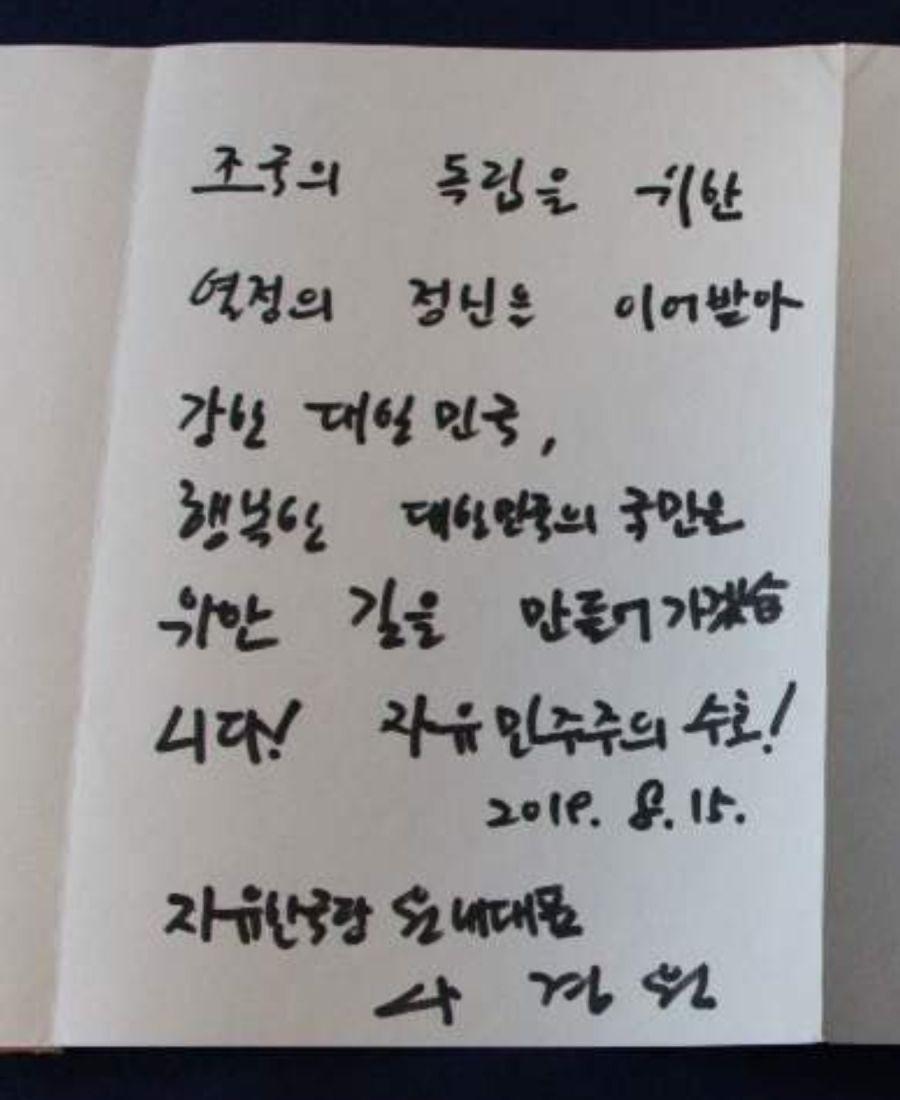 조국의 독립을 위한
열정의 정신을 이어받아
강한 대한민국,
행복한 대한민국의 국민을
위한 길을 만들어 가겠습
니다! 자유민주주의 수호!
2019. 8. 15.
자유한국당 원내대표
나 경 원